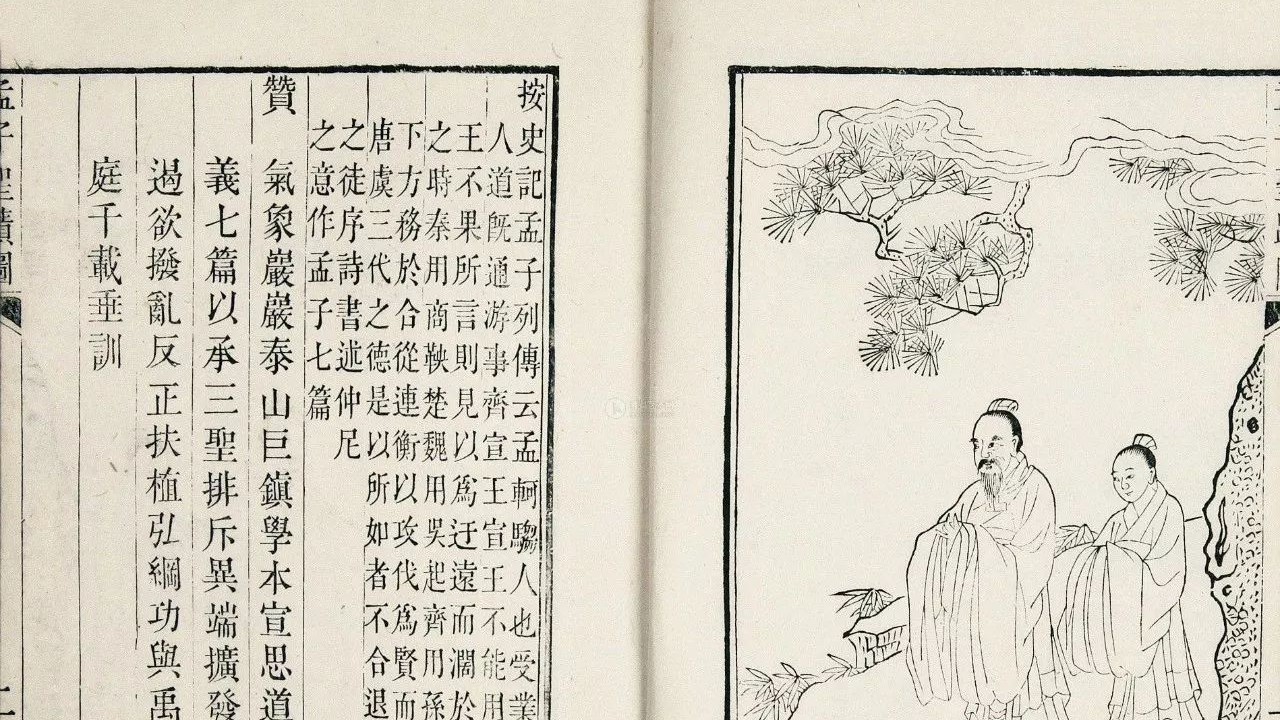 按史記孟子列傳云孟軻騶人也受業
人道旣通游事齊宣王宣王不能用
王不果所言則見以爲迂遠而濶於
之時秦用商鞅楚魏用吳起齊用孫
下方務於合從連衡以攻伐爲賢而
唐虞三代之德是以所如者不合退
之徒序詩書述仲尼
之意作孟子七篇
贊 氣象巖巖泰山巨鎮學本宣思道
義七篇以承三聖排斥異端擴發
遏欲撥亂反正扶植弘綱功與禹
庭千載垂訓
孟子聖蹟圖